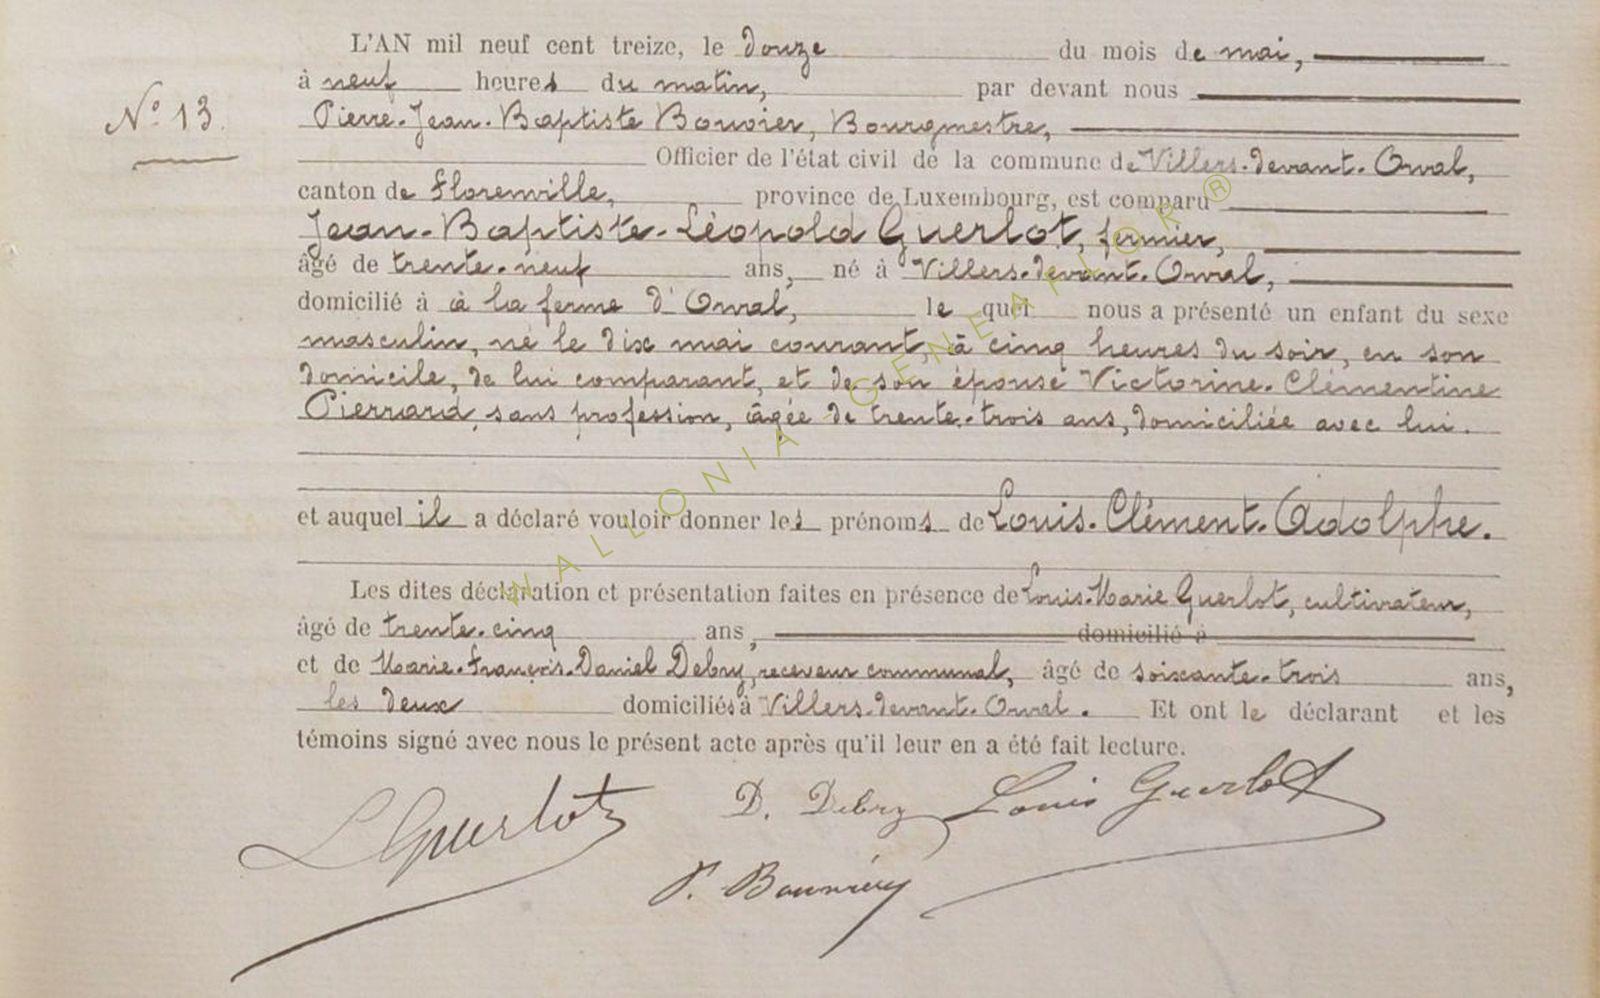 L'AN mil neuf cent treize, le douze du mois de mai,
à neuf heures du matin, par devant nous
N° 13.
Pierre-Jean-Baptiste Bouvier, Bourgmestre,
Officier de l'état civil de la commune de Villers-devant-Orval,
canton de Florenville, province de Luxembourg, est comparu
Jean-Baptiste-Léopold Guerlot, fermier,
âgé de trente-neuf ans, né à Villers-devant-Orval,
domicilié à à la ferme d'Orval, le quel nous a présenté un enfant du sexe
masculin, né le dix mai courant, à cinq heures du soir, en son
domicile, de lui comparant, et de son épouse Victorine-Clémentine
Pierrard, sans profession, âgée de trente-trois ans, domiciliée avec lui.
et auquel il a déclaré vouloir donner les prénoms de Louis-Clément-Adolphe.
Les dites déclaration et présentation faites en présence de Louis-Marie Guerlot, cultivateur,
âgé de trente-cinq ans, domicilié à
et de Marie-François-Daniel Debry, receveur communal, âgé de soixante-trois ans,
les deux domiciliés à Villers-devant-Orval. Et ont le déclarant et les
témoins signé avec nous le présent acte après qu'il leur en a été fait lecture.
L Guerlot D. Debry Louis Guerlot
WALLONIA-GENEAFLOR®